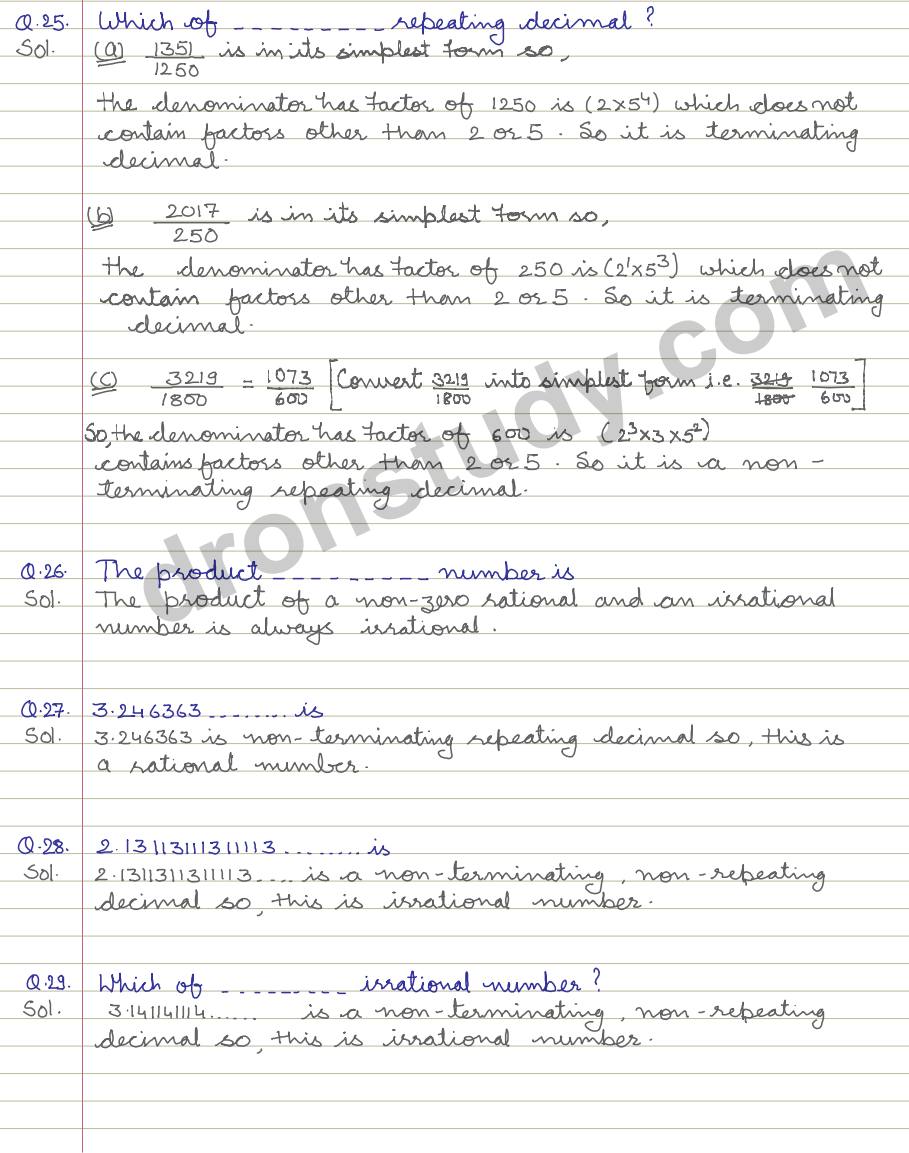 Q.25. Which of __________ repeating decimal ?
Sol. (a) 1351/1250 is in its simplest form so,
the denominator has factor of 1250 is (2×5⁴) which does not
contain factors other than 2 or 5. So it is terminating
decimal.
(b) 2017/250 is in its simplest form so,
the denominator has factor of 250 is (2¹×5³) which does not
contain factors other than 2 or 5. So it is terminating
decimal.
(c) 3219/1800 = 1073/600 [Convert 3219/1800 into simplest form i.e. 3219/1800 1073/600]
So, the denominator has factor of 600 is (2³×3×5²)
contains factors other than 2 or 5. So it is a non-
terminating repeating decimal.
Q.26. The product __________ number is
Sol. The product of a non-zero rational and an irrational
number is always irrational.
Q.27. 3.246363........ is
Sol. 3.246363 is non-terminating repeating decimal so, this is
a rational number.
Q.28. 2.13113111311113........ is
Sol. 2.1311311311113.... is a non-terminating, non-repeating
decimal so, this is irrational number.
Q.29. Which of _________ irrational number ?
Sol. 3.141141114...... is a non-terminating, non-repeating
decimal so, this is irrational number.
dronstudy.com